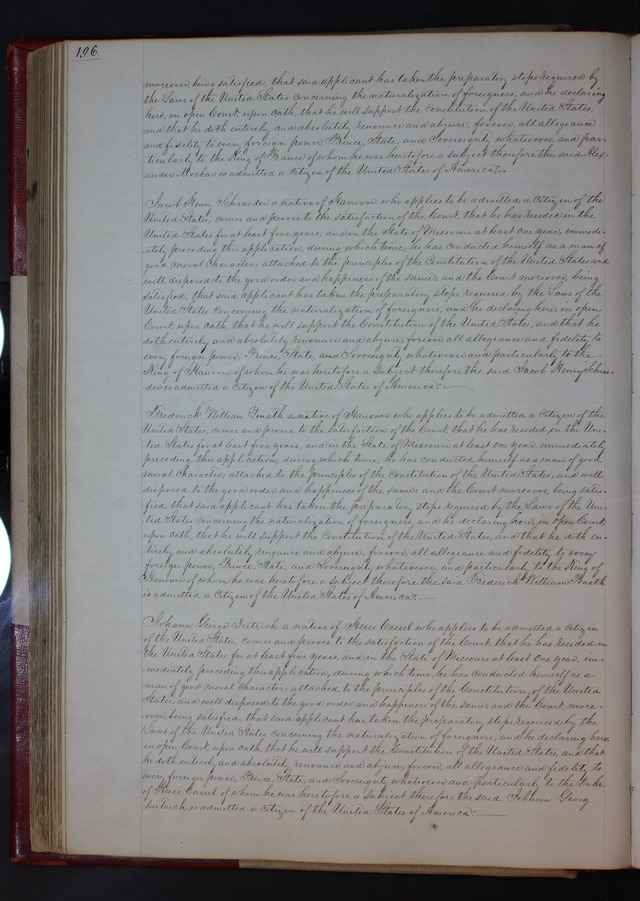 196.
moreover being satisfied, that said applicant has taken the preparatory steps required by
the Laws of the United States concerning the naturalization of foreigners, and he declaring
here, in open Court, upon oath, that he will support the Constitution of the United States,
and that he doth entirely and absolutely, renounce and abjure, forever, all allegiance
and fidelity to every foreign power, Prince, State, and Sovereignty whatsoever, and par-
ticularly to the King of France of whom he was heretofore a subject therefore the said Alex-
ander is admitted a Citizen of the United States of America.
Jacob Henry Schrader a native of Hanover who applies to be admitted a Citizen of the
United States, comes and proves to the satisfaction of the Court, that he has resided in the
United States for at least five years, and in the State of Missouri at least one year, immedi-
ately preceding this application, during which time, he has conducted himself as a man of
good moral Character, attached to the principles of the Constitution of the United States and
well disposed to the good order and happiness of the same; and the Court moreover, being
satisfied, that said applicant has taken the preparatory steps required by the Laws of the
United States concerning the naturalization of foreigners, and he declaring here, in open
Court, upon oath, that he will support the Constitution of the United States, and that he
doth entirely and absolutely renounce and abjure, forever all allegiance and fidelity to
every foreign power, Prince, State, and Sovereignty whatsoever and particularly to the
King of Hanover of whom he was heretofore a Subject therefore the said Jacob Henry Schra-
der is admitted a Citizen of the United States of America.
Frederick William a native of Hanover who applies to be admitted a Citizen of the
United States, comes and proves to the satisfaction of the Court, that he has resided in the Uni-
ted States for at least five years, and in the State of Missouri at least one year, immediately
preceding this application, during which time, he has conducted himself as a man of good
moral Character, attached to the principles of the Constitution of the United States, and well
disposed to the good order and happiness of the same; and the Court moreover, being satis-
fied, that said applicant has taken the preparatory steps required by the Laws of the Uni-
ted States concerning the naturalization of foreigners, and he declaring here, in open Court,
upon oath, that he will support the Constitution of the United States, and that he doth en-
tirely and absolutely, renounce and abjure, forever, all allegiance and fidelity to every
foreign power, Prince, State, and Sovereignty whatsoever, and particularly to the King of
Hanover of whom he was heretofore a Subject therefore the said Frederick William
is admitted a Citizen of the United States of America.
Johann Georg Dietrich a native of Hesse Cassel who applies to be admitted a Citizen
of the United States, comes and proves to the satisfaction of the Court, that he has resided in
the United States for at least five years, and in the State of Missouri at least one year, im-
mediately preceding this application, during which time, he has conducted himself as a
man of good moral Character, attached to the principles of the Constitution of the United
States, and well disposed to the good order and happiness of the same; and the Court, more-
over, being satisfied, that said applicant has taken the preparatory steps required by the
Laws of the United States concerning the naturalization of foreigners, and he declaring here,
in open Court, upon oath, that he will support the Constitution of the United States, and that
he doth entirely and absolutely, renounce and abjure, forever, all allegiance and fidelity to
every foreign power, Prince, State, and Sovereignty whatsoever and particularly to the Duke
of Hesse Cassel of whom he was heretofore a Subject therefore the said Johann Georg
Dietrich is admitted a Citizen of the United States of America.